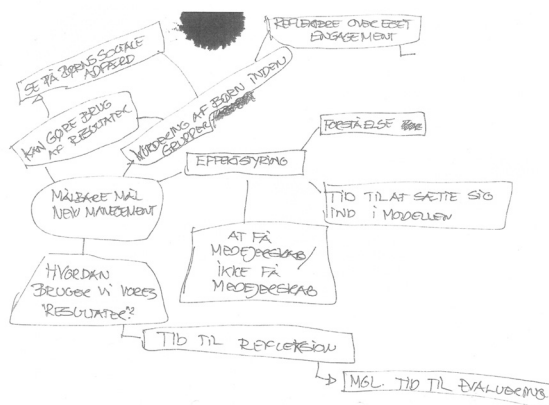 REFLEKTERE OVER EGET
ENGAGEMENT
SE PÅ BØRNS SOCIALE
ADFÆRD
KAN GØRE BRUG
AF RESULTATER
VURDERING AF BØRN INDEN
GRUPPER
FORSTÅELSE
EFFEKTSTYRING
MÅLBARE MÅL
NEW MANEGEMENT
TID TIL AT SÆTTE SIG
IND I MODELLEN
AT FÅ
MEDEJERSKAB/
IKKE FÅ
MEDEJERSKAB
HVORDAN
BRUGER VI VORES
"RESULTATER"?
TID TIL REFLEKSION
MGL. TID TIL EVALUERING